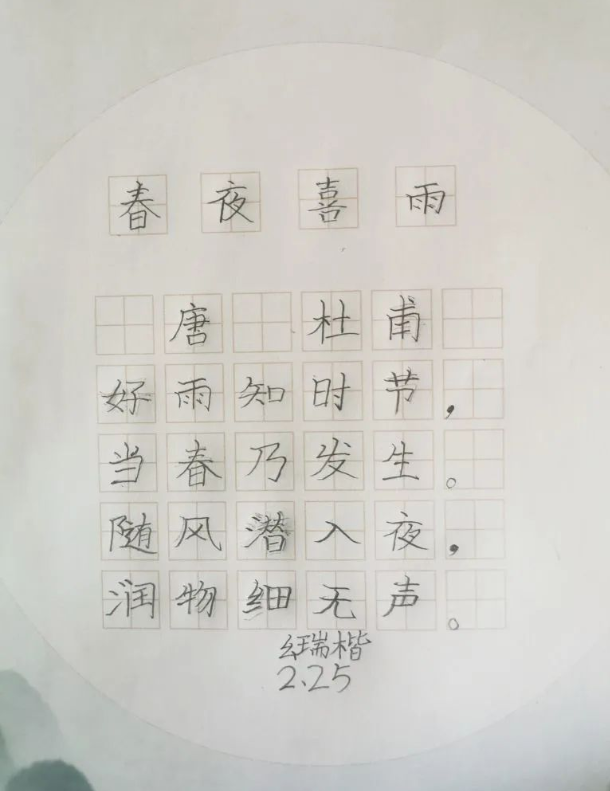 春夜喜雨
唐 杜甫
好雨知时节，
当春乃发生。
随风潜入夜，
润物细无声。
瑞楷
2.25